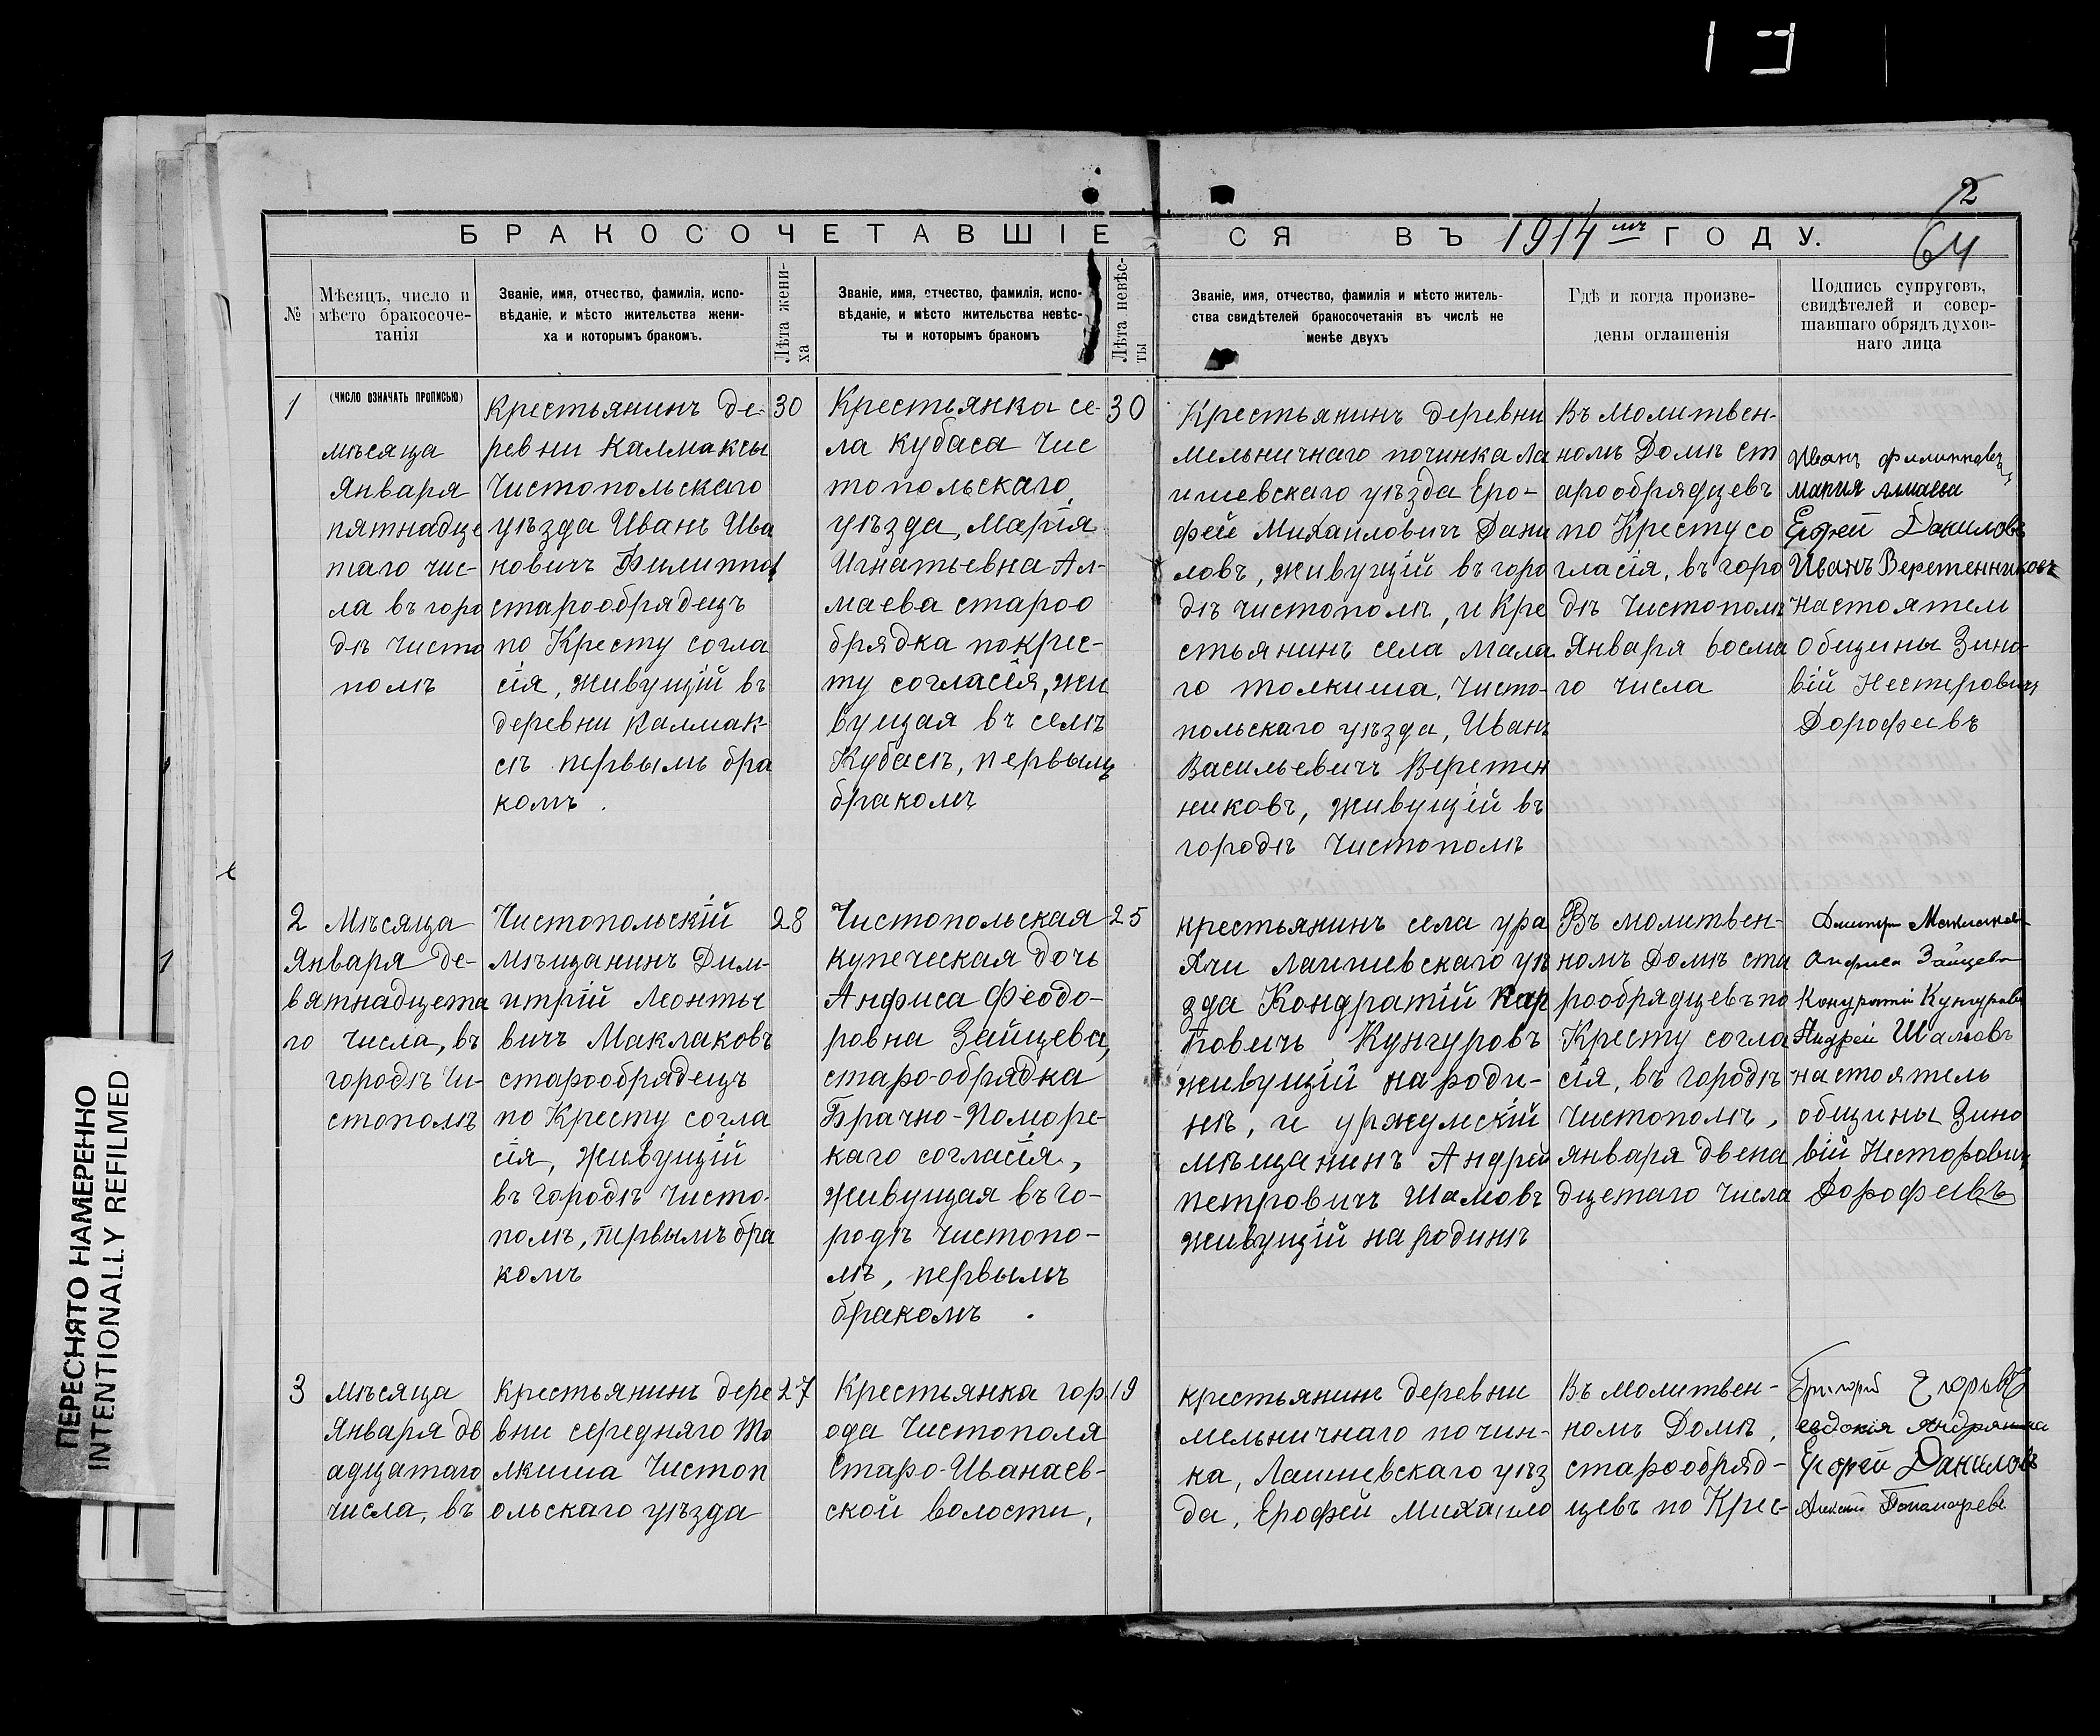 2
БРАКОСОЧЕТАВШІЕСЯ ВЪ 1914 мъ ГОДУ.
64
№
Мѣсяцъ, число и
мѣсто бракосоче-
танія
Званіе, имя, отчество, фамилія, испо-
вѣданіе, и мѣсто жительства жени-
ха и которымъ бракомъ.
Лѣта жени-
ха
Званіе, имя, отчество, фамилія, испо-
вѣданіе, и мѣсто жительства невѣс-
ты и которымъ бракомъ
Лѣта невѣс-
ты
Званіе, имя, отчество, фамилія и мѣсто житель-
ства свидѣтелей бракосочетанія въ числѣ не
менѣе двухъ
Гдѣ и когда произве-
дены оглашенія
Подпись супруговъ,
свидѣтелей и совер-
шавшаго обрядъ духов-
наго лица
1
(ЧИСЛО ОЗНАЧАТЬ ПРОПИСЬЮ)
мѣсяца
Января
пятнадце
таго чис-
ла въ горо
дѣ Чисто
полѣ
Крестьянинъ де-
ревни Калмаксы
Чистопольскаго
уѣзда Иванъ Ива
новичъ Филиппов
старообрядецъ
по Кресту согла
сія, живущій въ
деревни Калмак-
сѣ первымъ бра
комъ.
30
Крестьянка се-
ла Кубаса Чис
топольскаго
уѣзда, Марія
Игнатьевна Ал-
маева староо
брядка по крес-
ту согласія, жи
вущая въ селѣ
Кубасѣ, первымъ
бракомъ
30
Крестьянинъ деревни
Мельничнаго починка Ла
ишевскаго уѣзда Еро-
фей Михаиловичъ Дани
ловъ, живущій въ горо
дѣ Чистополѣ, и Кре
стьянинъ села Мала
го Толкиша, Чисто-
польскаго уѣзда, Иванъ
Васильевичъ Веретен
никовъ, живущій въ
городѣ Чистополѣ
Въ Молитвен-
номъ Домѣ ст
арообрядцевъ
по Кресту со
гласія, въ горо
дѣ Чистополѣ
Января восма
го числа
Иванъ Филипповъ
Мария Алмаева
Ерофей Даниловъ
Иванъ Веретенниковъ
Настоятель
Общины Зино-
вій Нестеровичъ
Дорофеевъ
2
Мѣсяца
Января де-
вятнадцета
го числа, въ
городѣ Чи-
стополѣ
Чистопольскій
Мѣщанинъ Дим-
итрій Леонтье
вичъ Маклаковъ
старообрядецъ
по Кресту согла
сія, живущій
въ городѣ Чисто-
полѣ, первымъ бра
комъ
28
Чистопольская
купеческая дочь
Анфиса Феодо-
ровна Зайцева,
старо-обрядка
Брачно-Поморс-
каго согласія,
живущая въ го-
родѣ Чистопо-
лѣ, первымъ
бракомъ.
25
крестьянинъ села Ура
хчи Лаишевскаго уѣ
зда Кондратій Кар
повичъ Кунгуровъ
живущій на роди-
нѣ, и уржумскій
мѣщанинъ Андрей
Петровичъ Шамовъ
живущій на родинѣ
Въ молитвен-
номъ Домѣ ста
рообрядцевъ по
Кресту согла
сія, въ городѣ
Чистополѣ,
января двена
дцетаго числа
Дмитри Маклаковъ
Анфиса Зайцева
Кондратій Кунгуровъ
Андрей Шамовъ
настоятель
общины Зино
вій Несторовичъ
Дорофеевъ
3
мѣсяца
Января дв
адцатаго
числа, въ
Крестьянинъ дере
вни середняго То
лкиша Чистоп
ольскаго уѣзда
27
Крестьянка гор
ода Чистополя
Старо-Иванаев-
ской волости,
19
крестьянинъ деревни
мельничнаго почин-
ка, Лаишевскаго уѣз
да, Ерофей Михаило
Въ Молитвен-
номъ Домѣ,
старообряд-
цевъ по Крес-
Григорій Егоровъ
евдокія
Ерофей Даниловъ
Алексей Пономарев
ПЕРЕСНЯТО НАМЕРЕННО
INTENTIONALLY REFILMED